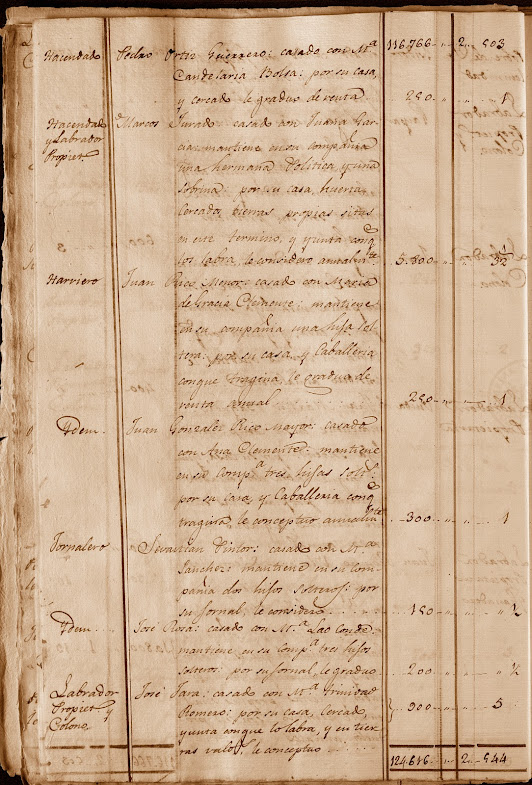 116.766 2.. 503
Hacendado Pedro Ortiz Guerrero: casado con M.ª
Candelaria Bolsa: por su casa,
y cercado le graduo de renta 280 1
Hacendado Marcos Jurado: casado con Juana Gar-
y Labrador cia: mantiene en su compañia
Propiet.º una hermana Politica, y una
sobrina: por su casa, huerta,
cercado, tierras propias sitas
en este termino, y yunta conq.e
los labra, le considero annalm.te 5.800
Harriero Juan Rico Menor: casado con Maria
de Gracia Clemente: mantiene
en su compañia una hija sol-
tera: por su casa, y Caballeria
conque tragina, le graduo de
renta anual 280 1
Ydem. Juan Gonzalez Rico Mayor: casado
con Ana Clemente: mantiene
en su Comp.ª tres hijas solt.s
por su casa, y Caballeria conq.e
tragina, le conceptuo annalm.te 300 1
Jornalero Sevastian Pintor: casado con M.ª
Sanchez: mantiene en su com-
pañia dos hijos solteros: por
su jornal, le considero 180 ½
Ydem. José Rosa: casado con M.ª Lao Conde:
mantiene en su Comp.ª tres hijos
solteros: por su jornal, le graduo 200 ½
Labrador José Jara: casado con M.ª Trinidad
Propiet.º y Romero: por su casa, cercado, 900 5
Colono. yunta conque lo labra, y en tier-
ras valds. le conceptuo
124.616 2.. 544